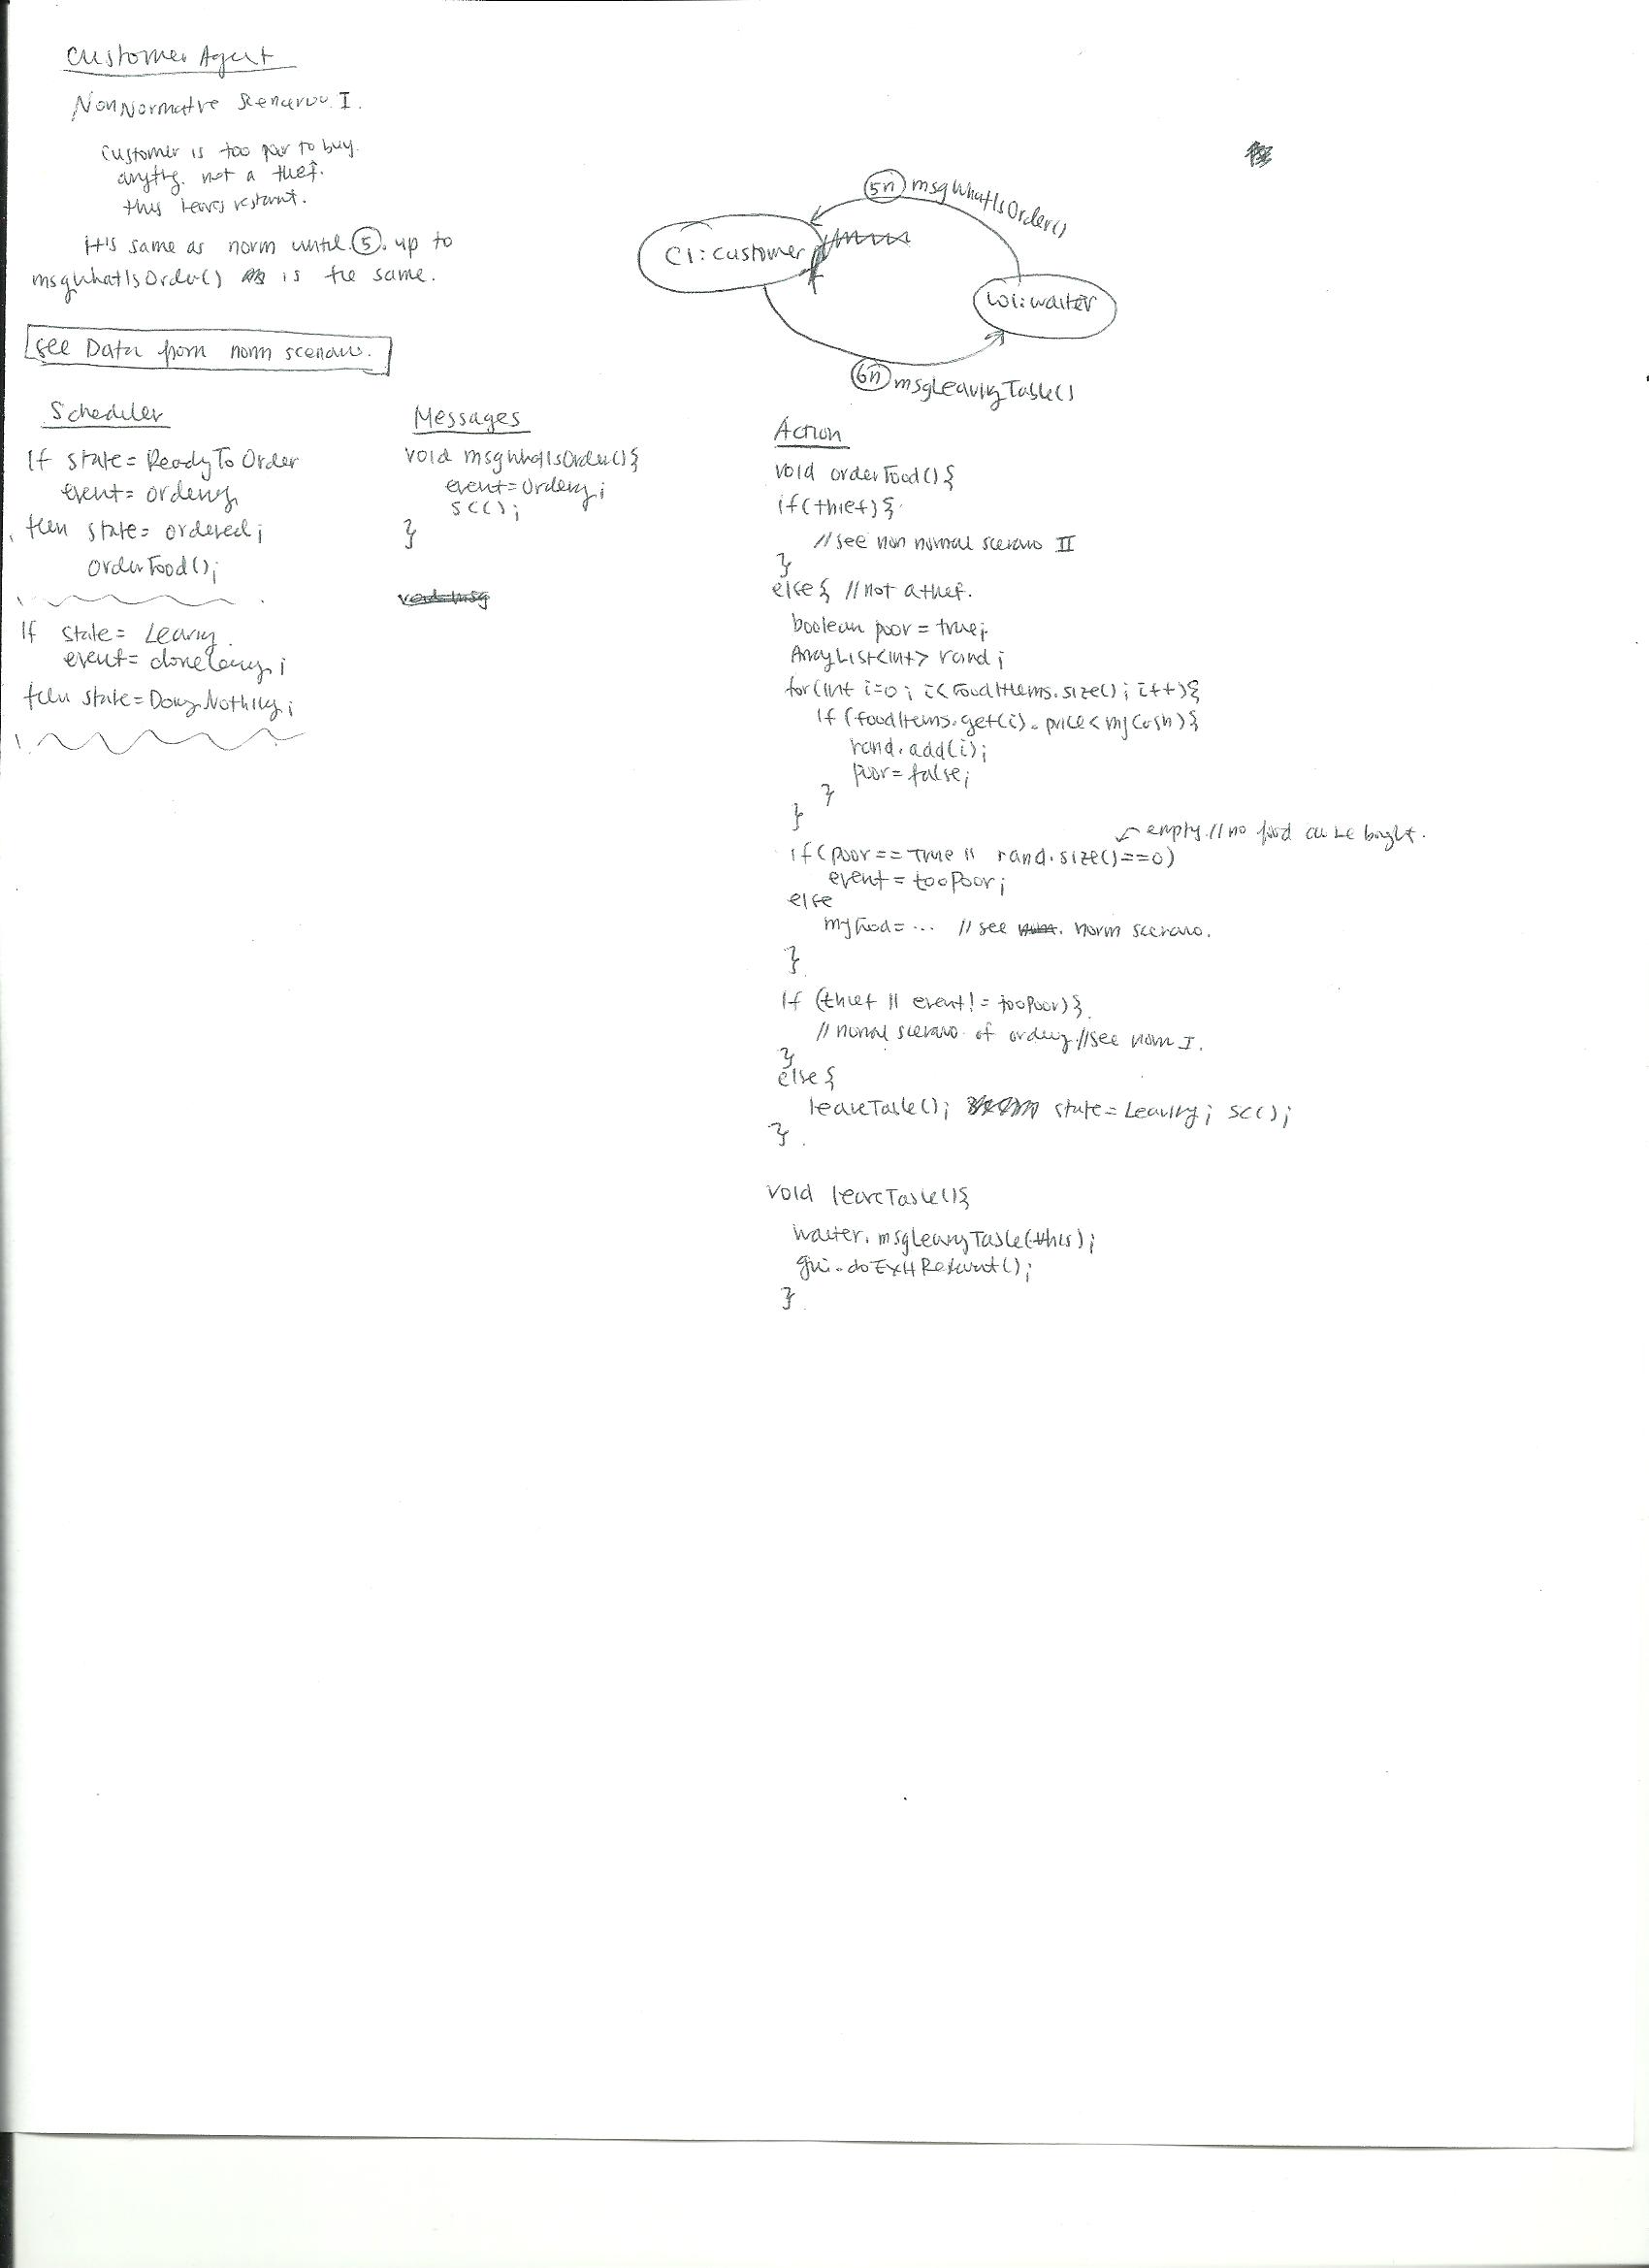 Customer Agent
NonNormative Scenario I.
customer is too poor to buy
anything. not a thief.
thus leaves restaurant.
it's same as norm until ⑤. up to
msgWhatIsOrder() is the same.
see Data from norm scenario.
5n msgWhatIsOrder()
C1: customer
W1: waiter
6n msgLeavingTable()
Scheduler
If state = ReadyToOrder
event = ordering
then state = ordered;
orderFood();
If state = Leaving
event = doneLeaving;
then state = DoingNothing;
Messages
void msgWhatIsOrder(){
event = Ordering;
SC();
}
void msg
Action
void orderFood(){
if(thief){
//see non normal scenario II
}
else{ //not a thief.
boolean poor = true;
ArrayList<int> rand;
for(int i=0; i<foodItems.size(); i++){
if (foodItems.get(i).price < myCash){
rand.add(i);
poor = false;
}
}
empty // no food can be bought.
if (poor == true || rand.size()==0)
event = tooPoor;
else
myFood = ... //see norm scenario.
}
if (thief || event != tooPoor){
// normal scenario of ordering //see norm I.
}
else{
leaveTable(); state = Leaving; SC();
}
void leaveTable(){
waiter.msgLeavingTable(this);
gui.doExitRestaurant();
}